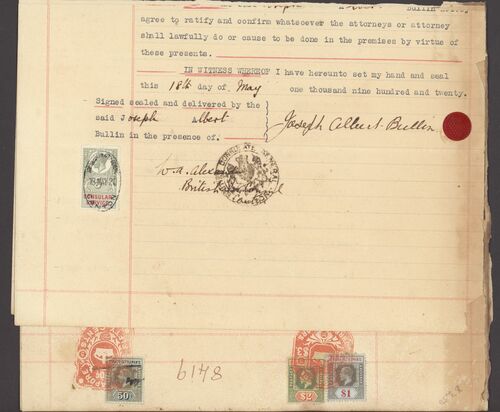 Bullin
agree to ratify and confirm whatsoever the attorneys or attorney
shall lawfully do or cause to be done in the premises by virtue of
these presents.
IN WITNESS WHEREOF I have hereunto set my hand and seal
this 18th day of May one thousand nine hundred and twenty.
Signed sealed and delivered by the
said Joseph Albert
Bullin in the presence of.
Joseph Albert Bullin
W.A. Alexander
British
CONSULAR
SERVICE
50
6148
$2
$1
$3